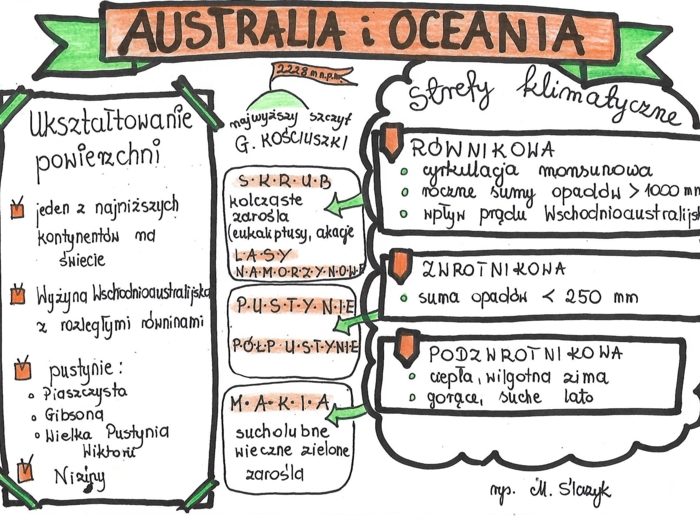 AUSTRALIA i OCEANIA
Ukształtowanie
powierzchni
jeden z najniższych
kontynentów na
świecie
Wyżyna Wschodnioaustralijska
z rozległymi równinami
pustynie:
Piaszczysta
Gibsona
Wielka Pustynia
Wiktorii
Niziny
2228 m n.p.m.
najwyższy szczyt
G. KOŚCIUSZKI
S·K·R·U·B
kolczaste
zarośla
(eukaliptusy, akacje
LASY
N·A·M·O·R·Z·Y·N·O·WE
P·U·S·T·Y·N·I·E
P·Ó·Ł·P·U·S·T·Y·N·I·E
M·A·K·I·A
sucholubne
wieczne zielone
zarośla
Strefy klimatyczne
RÓWNIKOWA
cyrkulacja monsunowa
roczne sumy opadów > 1000 mm
wpływ prądu Wschodnioaustralijs
ZWROTNIKOWA
suma opadów < 250 mm
PODZWROTNIKOWA
ciepła, wilgotna zima
gorące, suche lato
rys. M. Ślazyk